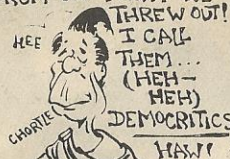 THREW OUT!
I CALL
THEM...
(HEH-
HEH)
DEMOCRITICS
HAW!
HEE
CHORTLE